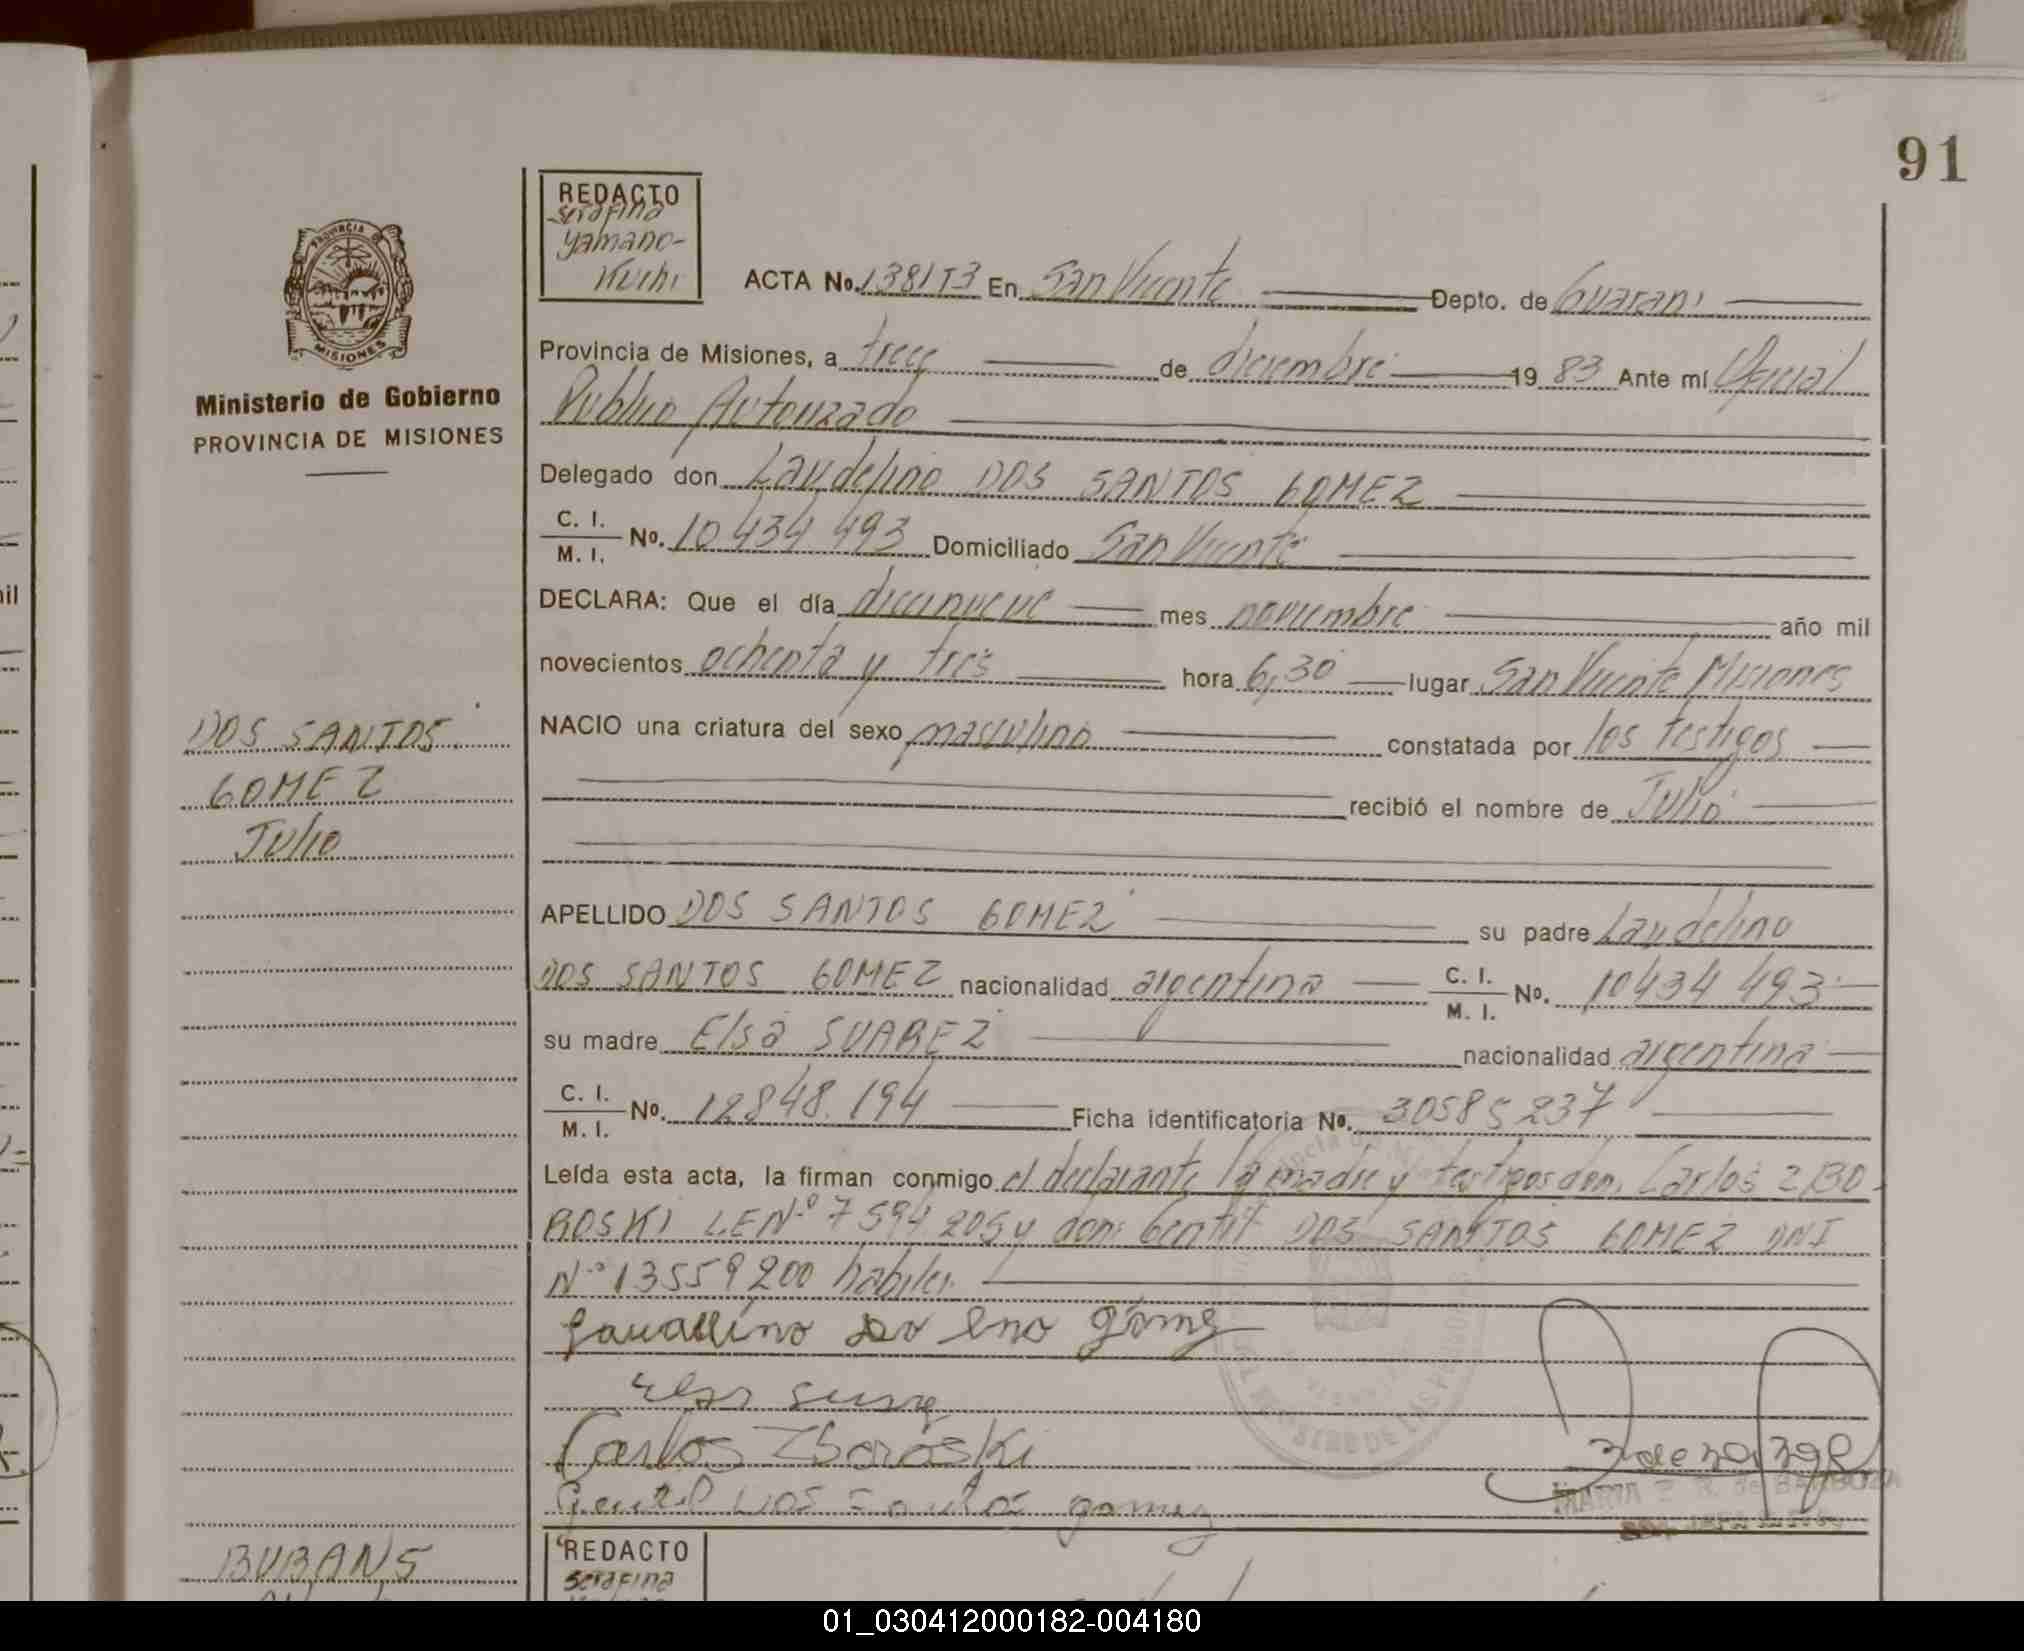 91
REDACTO
Serafina
Yamano-
Kuchi
PROVINCIA DE
MISIONES
Ministerio de Gobierno
PROVINCIA DE MISIONES
ACTA No. 138/T3 En San Vicente Depto. de Guarani
Provincia de Misiones, a trece de diciembre 19 83 Ante mí Oficial
Publico Autorizado
Delegado don Laudelino DOS SANTOS GOMEZ
C. I.
M. I. No. 10 434 493 Domiciliado San Vicente
DECLARA: Que el día diecinueve mes noviembre año mil
novecientos ochenta y tres hora 6,30 lugar San Vicente Misiones
NACIO una criatura del sexo masculino constatada por los testigos
recibió el nombre de Julio
DOS SANTOS
GOMEZ
Julio
APELLIDO DOS SANTOS GOMEZ su padre Laudelino
DOS SANTOS GOMEZ nacionalidad argentina C. I. M. I. No. 10434 493
su madre Elsa SUAREZ nacionalidad argentina
C. I.
M. I. No. 12848.194 Ficha identificatoria No. 30585237
Leída esta acta, la firman conmigo el declarante, la madre y testigos don. Carlos ZBO-
ROSKI LE Nº 7 594 205 y don: Gentil DOS SANTOS GOMEZ DNI
Nº 13559200 habiles.
Carlos Zboroski
Gentil Dos Santos gomez
MARIA R. de BARBOZA
BUBANS
REDACTO
Serafina
01_030412000182-004180